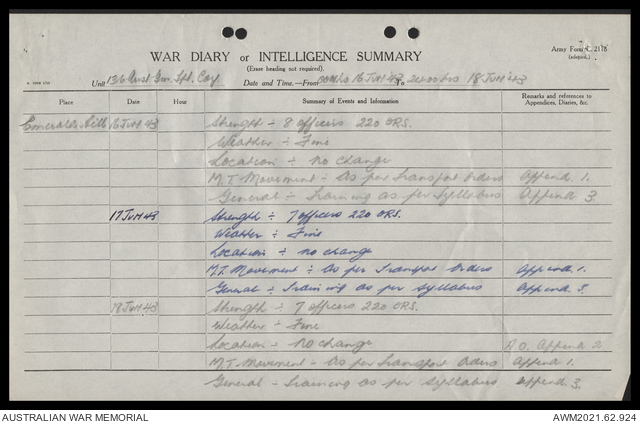 Army Form C. 2118
(adapted.)
WAR DIARY or INTELLIGENCE SUMMARY
(Erase heading not required).
Unit 136 Aust Gen. Tpt. Coy Date and Time.—From 0001hrs 16 JUN 43 To 2400hrs 18 JUN 43
Place Date Hour Summary of Events and Information Remarks and references to Appendices, Diaries, &c.
Emerald Hill 16 JUN 43 Strength ÷ 8 officers 220 ORS.
Weather ÷ Fine
Location ÷ no change
M.T. Movement ÷ As per Transport Orders Append 1.
General ÷ Training as per Syllabus Append 3.
17 JUN 43 Strength ÷ 7 officers 220 ORS.
Weather ÷ Fine
Location ÷ no change
M.T. Movement ÷ As per Transport Orders Append 1.
General ÷ Training as per Syllabus Append 3.
18 JUN 43 Strength ÷ 7 officers 220 ORS.
Weather ÷ Fine
Location ÷ No Change R.O. Append 2
M.T. Movement ÷ As per Transport Orders Append 1.
General ÷ Training as per Syllabus Append 3.
AUSTRALIAN WAR MEMORIAL AWM2021.62.924